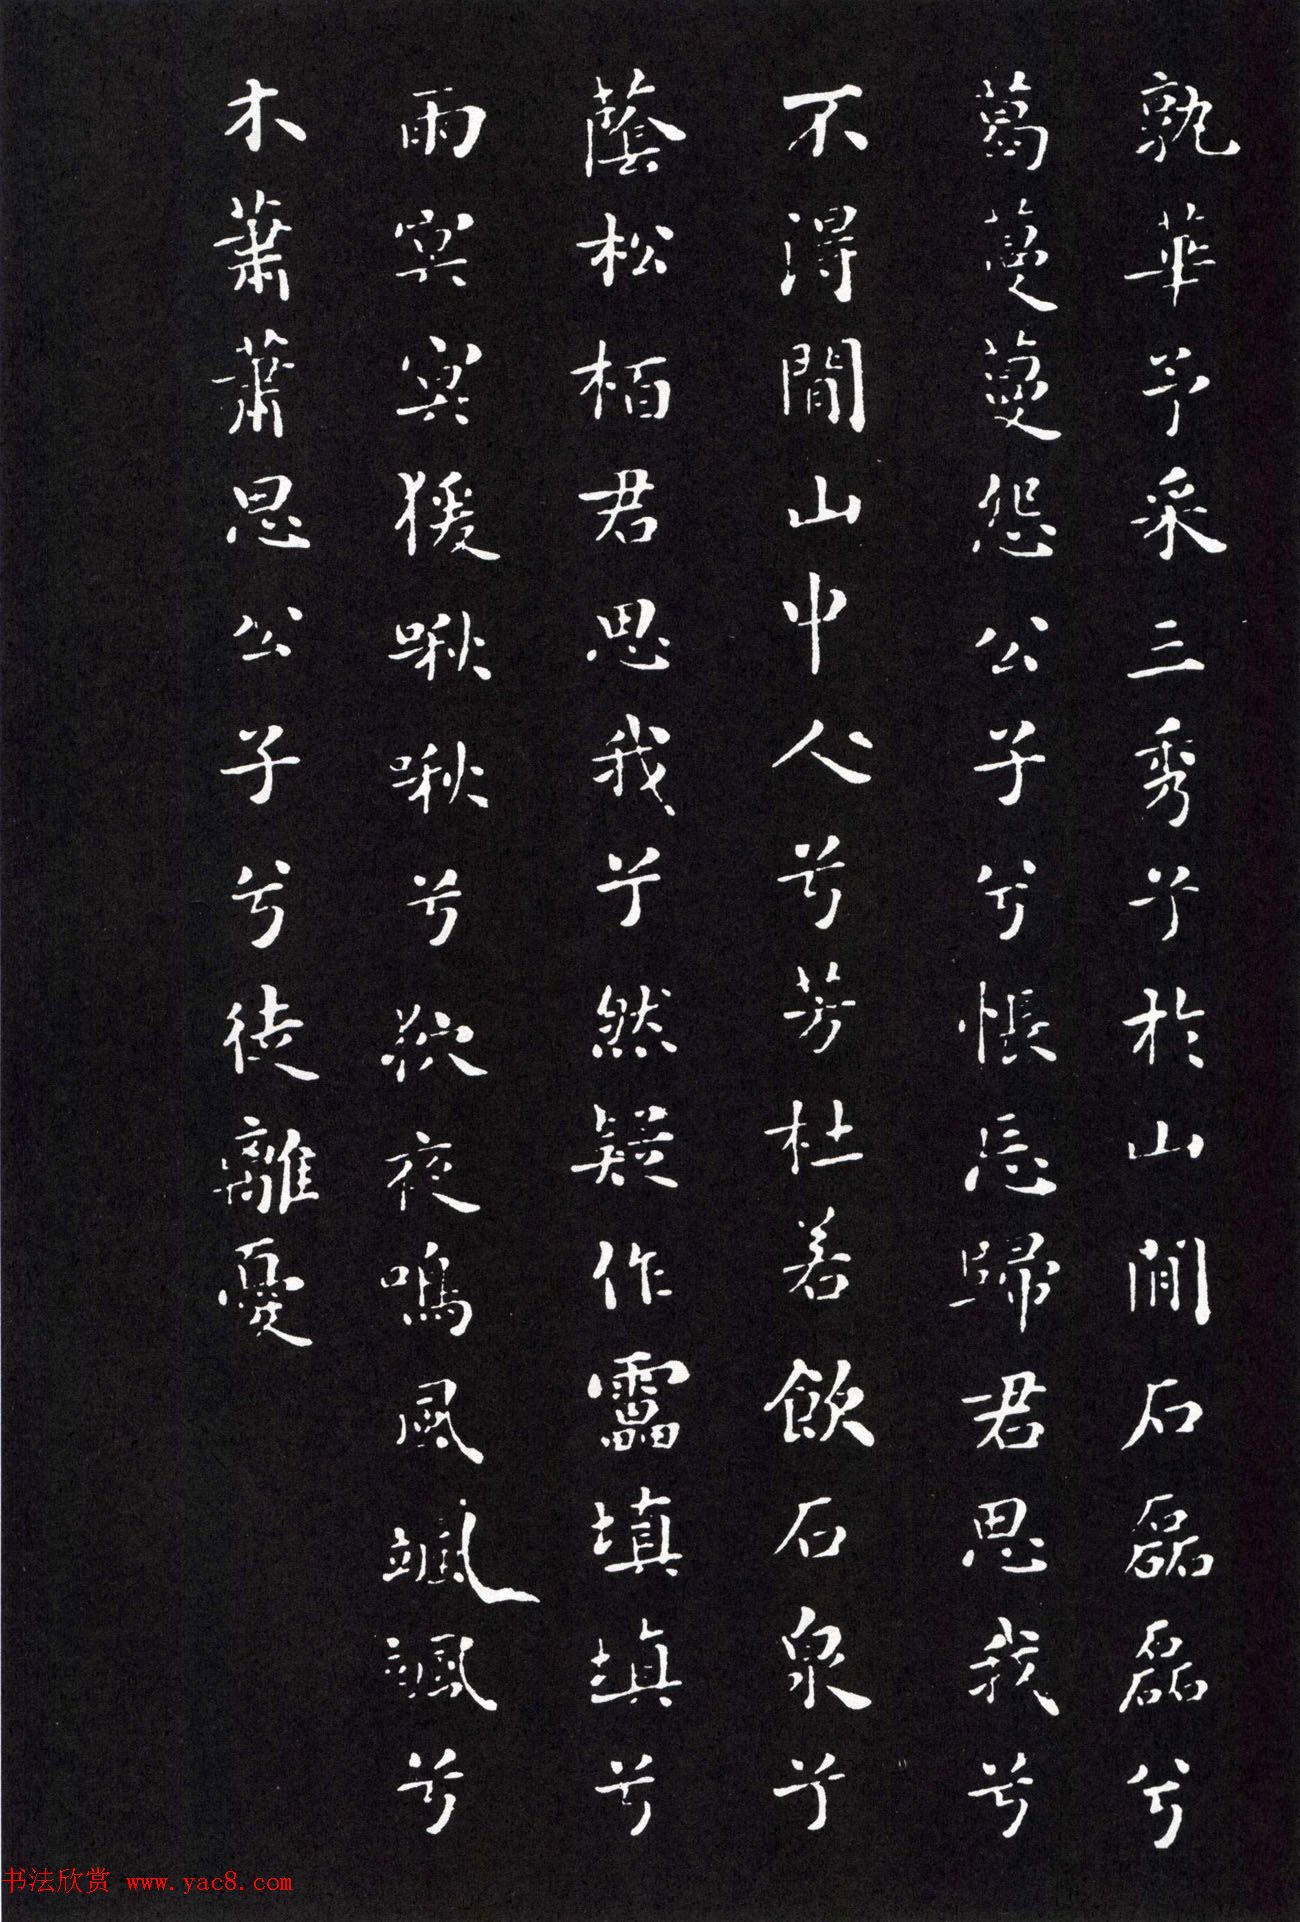 孰華予采三秀兮於山間石磊磊兮
葛蔓蔓怨公子兮悵忘歸君思我兮
不得閒山中人兮芳杜若飲石泉兮
蔭松栢君思我兮然疑作靁填填兮
雨冥冥猨啾啾兮狖夜鳴風颯颯兮
木蕭蕭思公子兮徒離憂
书法欣赏 www.yac8.com